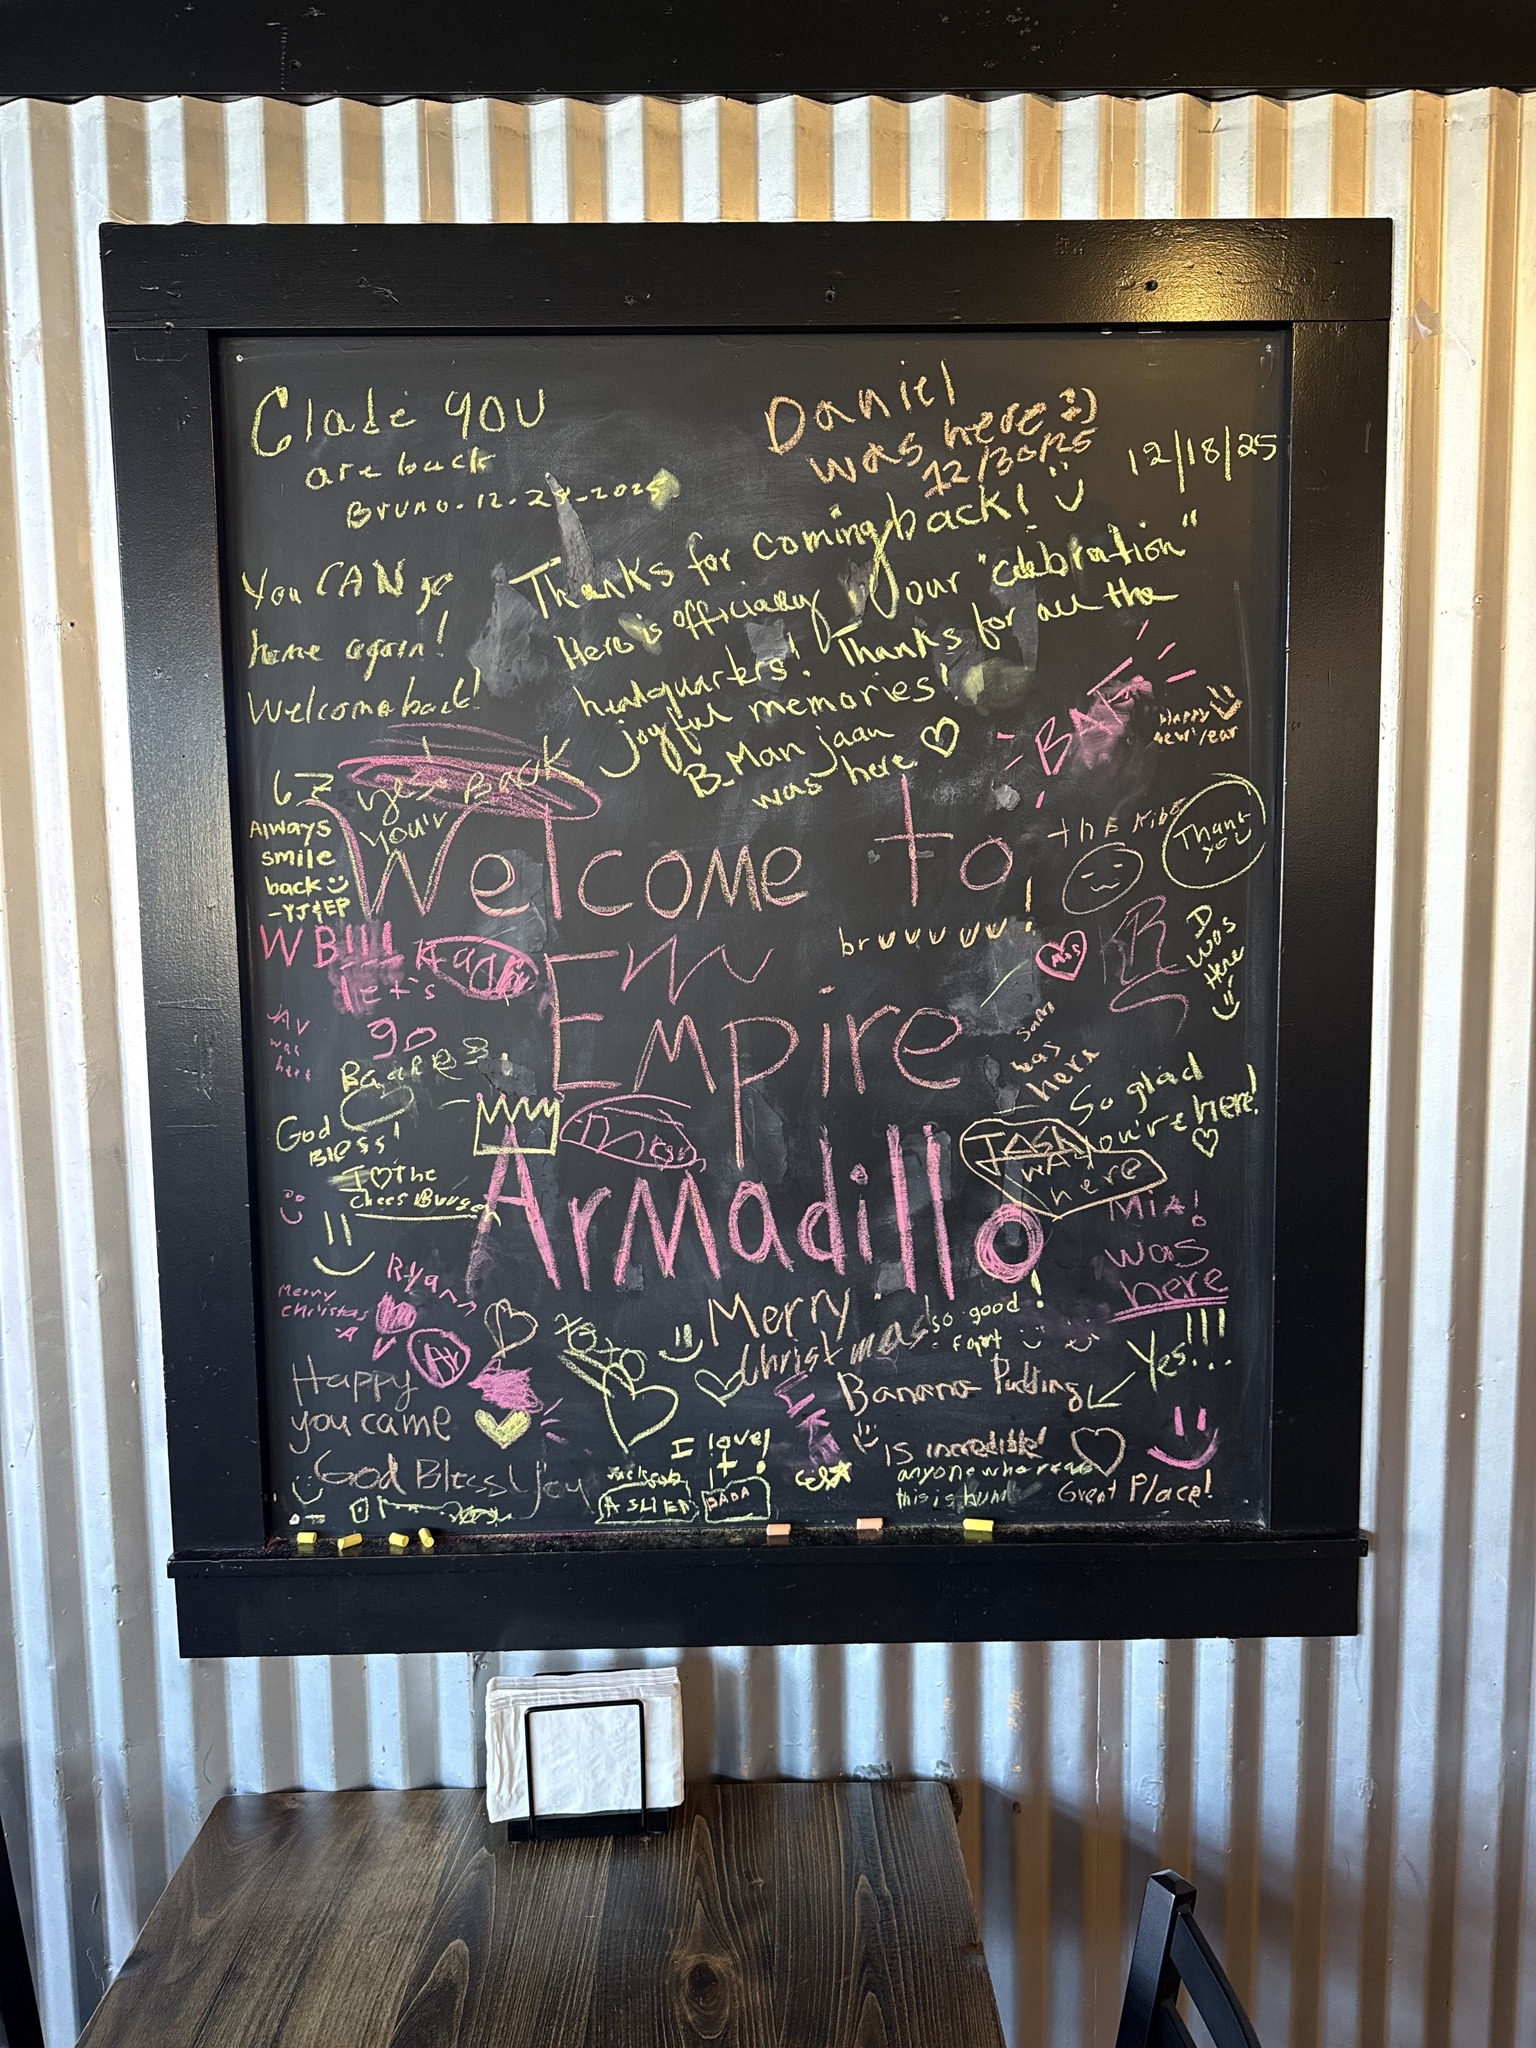 Glade you
are back
Bruno. 12-28-2025
Daniel
was here :)
12/30/25
12/18/25
You CAN go
home again!
Welcome back!
Thanks for coming back!
Here is officially your "celebration"
headquarters! Thanks for all the
joyful memories!
B-Man jaan
was here
BAT
Happy
New Year
67
Back
You'r
Always
smile
back
-YJ&EP
WB!!!
let's
go
Welcome to
Em
Empire
Armadillo
bruuuuuu!
the kibe
Thank
you
D
was
Here
JAV
was
here
Sam
was
here
God
Bless!
I ♡ the
Chees Burger
So glad
you're here!
JASA
was
here
MiA!
was
here
Ryan
Merry
Christmas
Merry
Christmas
so good!
Yes!!!
Happy
you came
God Bless! Joy
xoxo
LIKE
Banana Pudding
is incredible!
I love
it!
anyone who reads
this is
Great Place!
Jackson
DADA